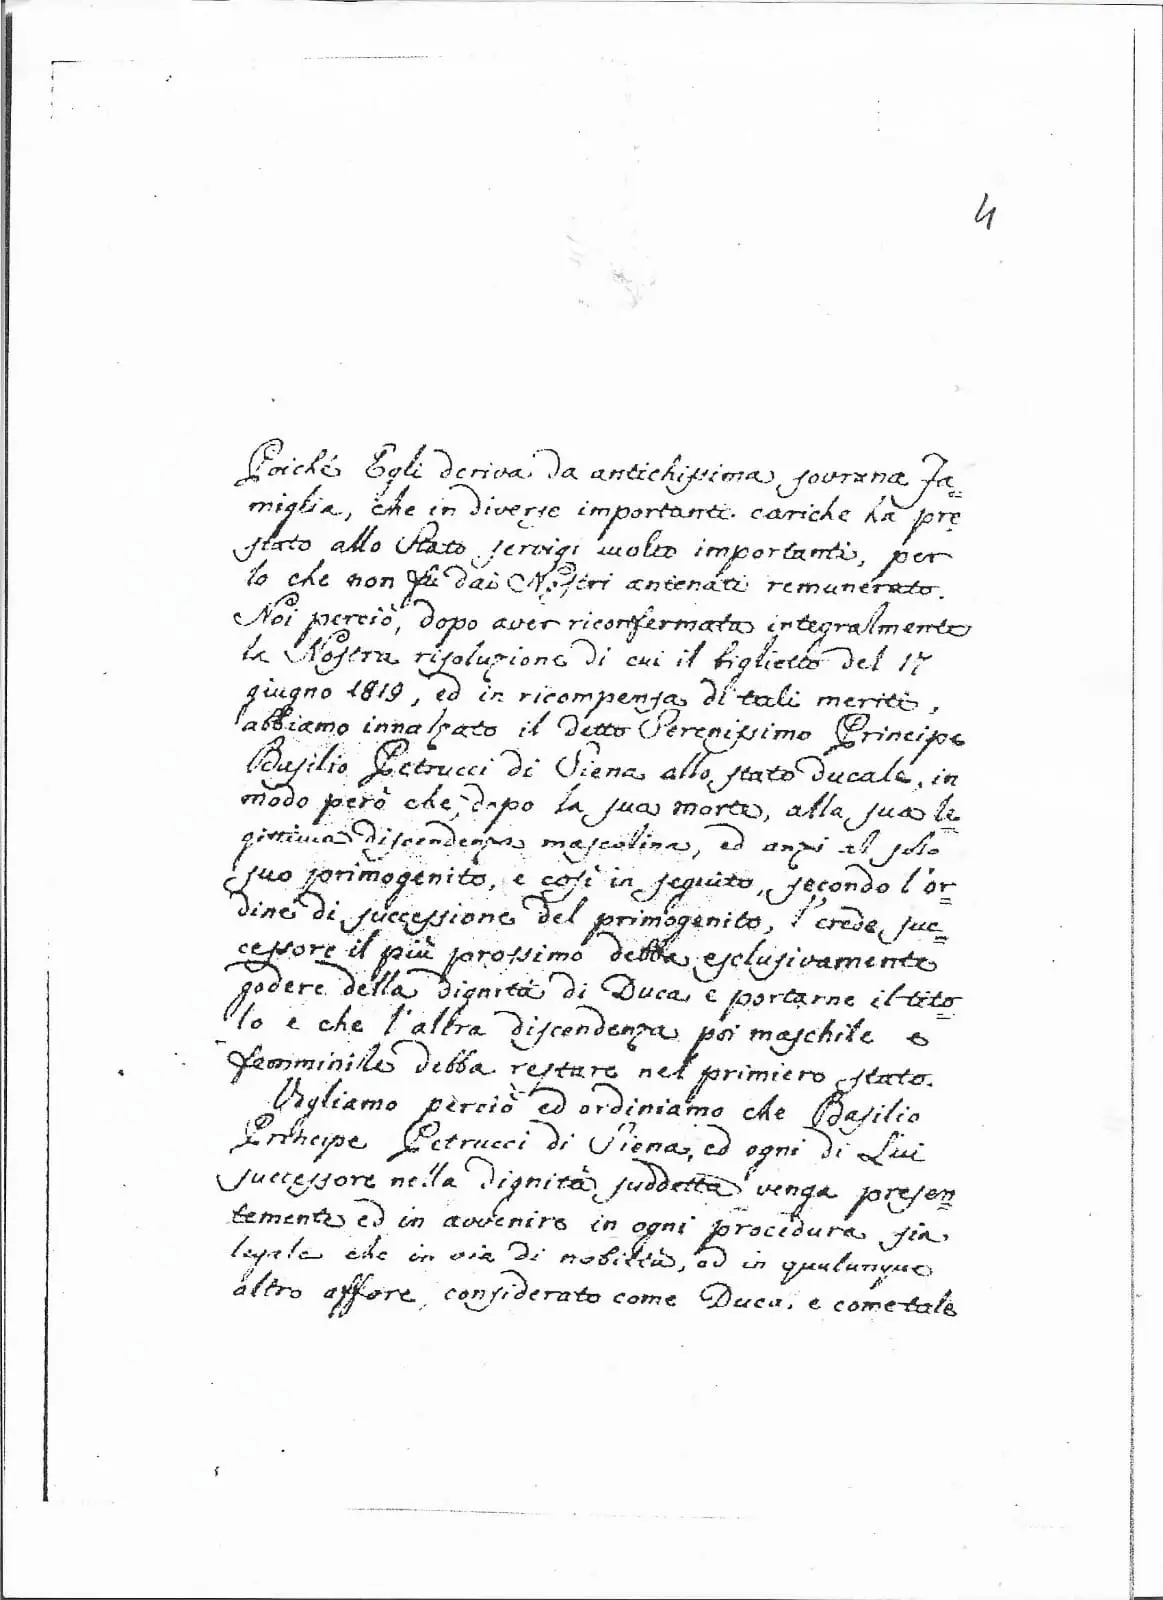 4
Poiché Egli deriva da antichissima, sovrana Fa=
miglia, che in diverse importanti cariche ha pre
stato allo Stato servigi molto importanti, per
lo che non fu dai Nostri antenati remunerato.
Noi perciò, dopo aver riconfermata integralmente
la Nostra risoluzione di cui il biglietto del 17
giugno 1819, ed in ricompensa di tali meriti,
abbiamo innalzato il detto Serenissimo Principe
Basilio Petrucci di Siena allo stato ducale, in
modo però che, dopo la sua morte, alla sua le=
gittima discendenza mascolina, ed anzi al solo
suo primogenito, e così in seguito, secondo l'or=
dine di successione del primogenito, l'erede suc=
cessore il più prossimo debba esclusivamente
godere della dignità di Duca e portarne il tito=
lo e che l'altra discendenza poi maschile e
femminile debba restare nel primiero stato.
Vogliamo perciò ed ordiniamo che Basilio
Principe Petrucci di Siena, ed ogni di Lui
successore nella dignità suddetta venga presen=
temente ed in avvenire in ogni procedura sia
legale che in via di nobiltà, od in qualunque
altro affare, considerato come Duca, e come tale